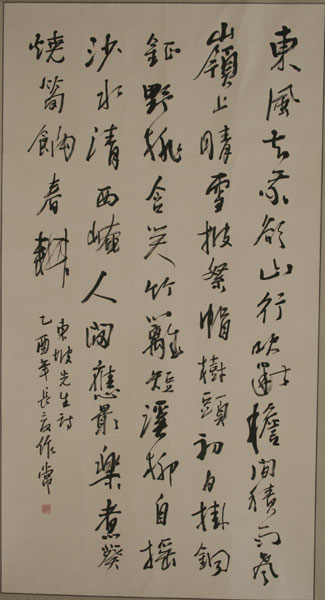 東風知我欲山行吹斷檐間積雨聲
嶺上晴雲披絮帽樹頭初日掛銅
鉦野桃含笑竹籬短溪柳自搖
沙水清西崦人家應最樂煮葵
燒筍餉春耕
東坡先生詩
乙酉年長